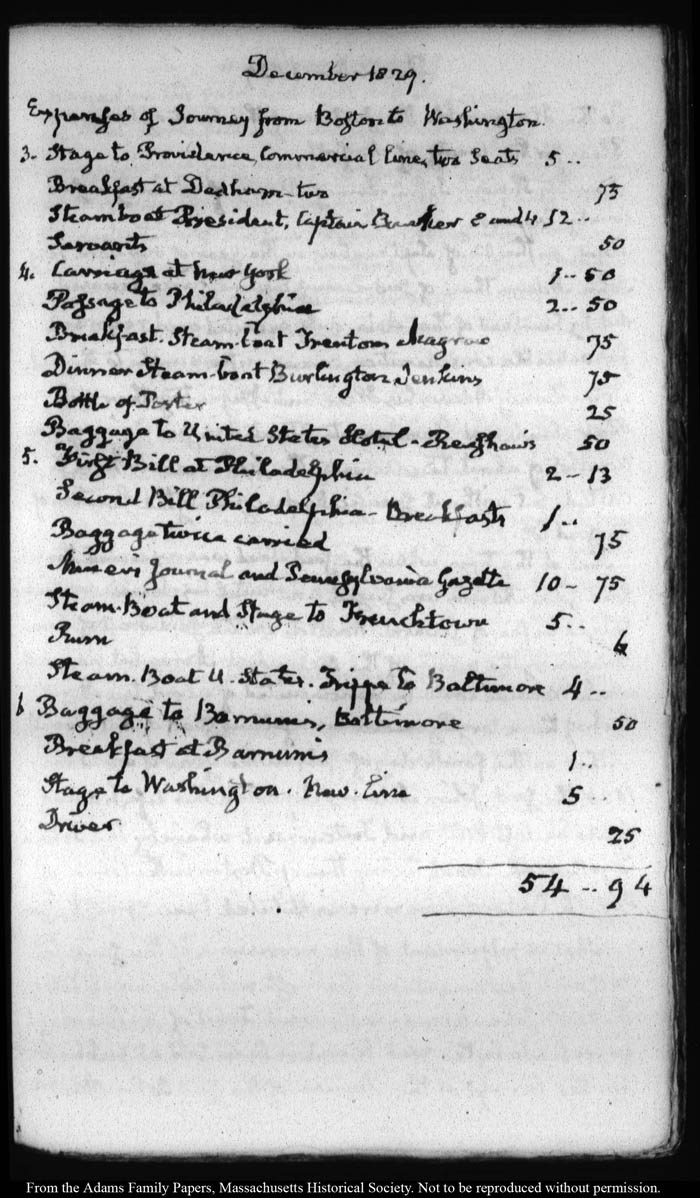 December 1829.
Expenses of Journey from Boston to Washington.
3. Stage to Providence, Commercial line, two Seats 5 ..
Breakfast at Dedham - two 75
Steamboat President, Captain Bunker 8 and 4 12 ..
Servants 50
4. Carriage at New York 1 .. 50
Passage to Philadelphia 2 .. 50
Breakfast. Steam-boat Trenton 75
Dinner Steam-boat Burlington Jenkins 75
Bottle of Porter 25
Baggage to United States Hotel - Renshaw's 50
5. First Bill at Philadelphia 2 - 13
Second Bill Philadelphia - Breakfasts 1 ..
Baggage twice carried 75
Journal and Pennsylvania Gazette 10 - 75
Steam-Boat and Stage to Frenchtown 5 ..
Rum 6
Steam. Boat U. States. Trippe to Baltimore 4 ..
6 Baggage to Barnum's, Baltimore 50
Breakfast at Barnum's 1 .
Stage to Washington. New. Line 5
Driver 25
54 .. 94
From the Adams Family Papers, Massachusetts Historical Society. Not to be reproduced without permission.